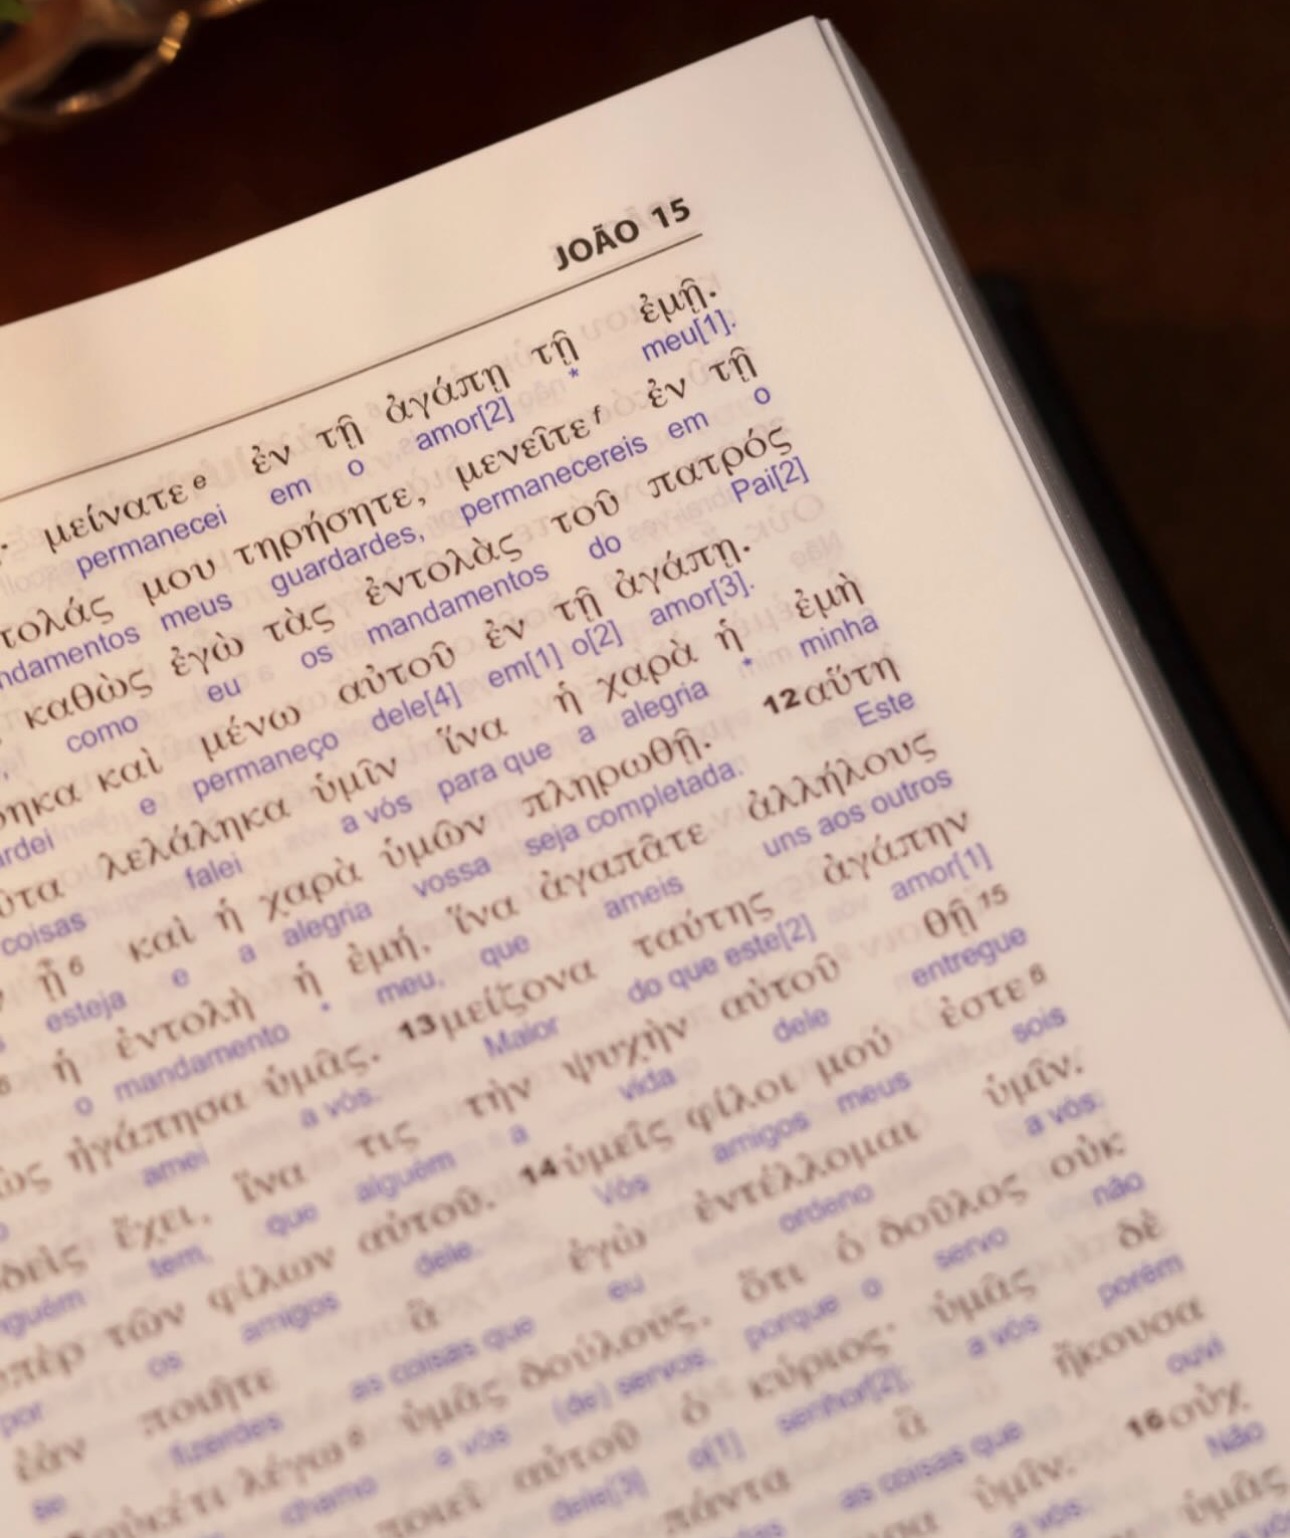 JOÃO 15
μείνατε e ἐν τῇ ἀγάπῃ τῇ ἐμῇ.
permanecei em o amor[2] * meu[1].
τολάς μου τηρήσητε, μενεῖτε f ἐν τῇ
ndamentos meus guardardes, permanecereis em o
καθὼς ἐγὼ τὰς ἐντολὰς τοῦ πατρός
como eu os mandamentos do Pai[2]
ηκα καὶ μένω αὐτοῦ ἐν τῇ ἀγάπῃ.
ardei e permaneço dele[4] em[1] o[2] amor[3].
ῦτα λελάληκα ὑμῖν ἵνα ἡ χαρὰ ἡ ἐμὴ
coisas falei a vós para que a alegria * minha
ᾖ 6 καὶ ἡ χαρὰ ὑμῶν πληρωθῇ. 12 αὕτη
esteja e a alegria vossa seja completada. Este
ἡ ἐντολὴ ἡ ἐμή, ἵνα ἀγαπᾶτε ἀλλήλους
o mandamento * meu, que ameis uns aos outros
ὼς ἠγάπησα ὑμᾶς. 13 μείζονα ταύτης ἀγάπην
amei a vós. Maior do que este[2] amor[1]
δεὶς ἔχει, ἵνα τις τὴν ψυχὴν αὐτοῦ θῇ 15
nguém tem, que alguém a vida dele entregue
ὑπὲρ τῶν φίλων αὐτοῦ. 14 ὑμεῖς φίλοι μού ἐστε 6
por os amigos dele. Vós amigos meus sois
ἐὰν ποιῆτε ἃ ἐγὼ ἐντέλλομαι ὑμῖν.
se fizerdes as coisas que eu ordeno a vós.
οὐκέτι λέγω 6 ὑμᾶς δούλους, ὅτι ὁ δοῦλος οὐκ
chamo a vós (de) servos, porque o servo não
ποιεῖ αὐτοῦ ὁ κύριος· ὑμᾶς δὲ
dele[3] o[1] senhor[2]; a vós porém
πάντα ἃ ἤκουσα
as coisas que ouvi
ὑμῖν. 16 οὐχ
a vós. Não
ὑμᾶς